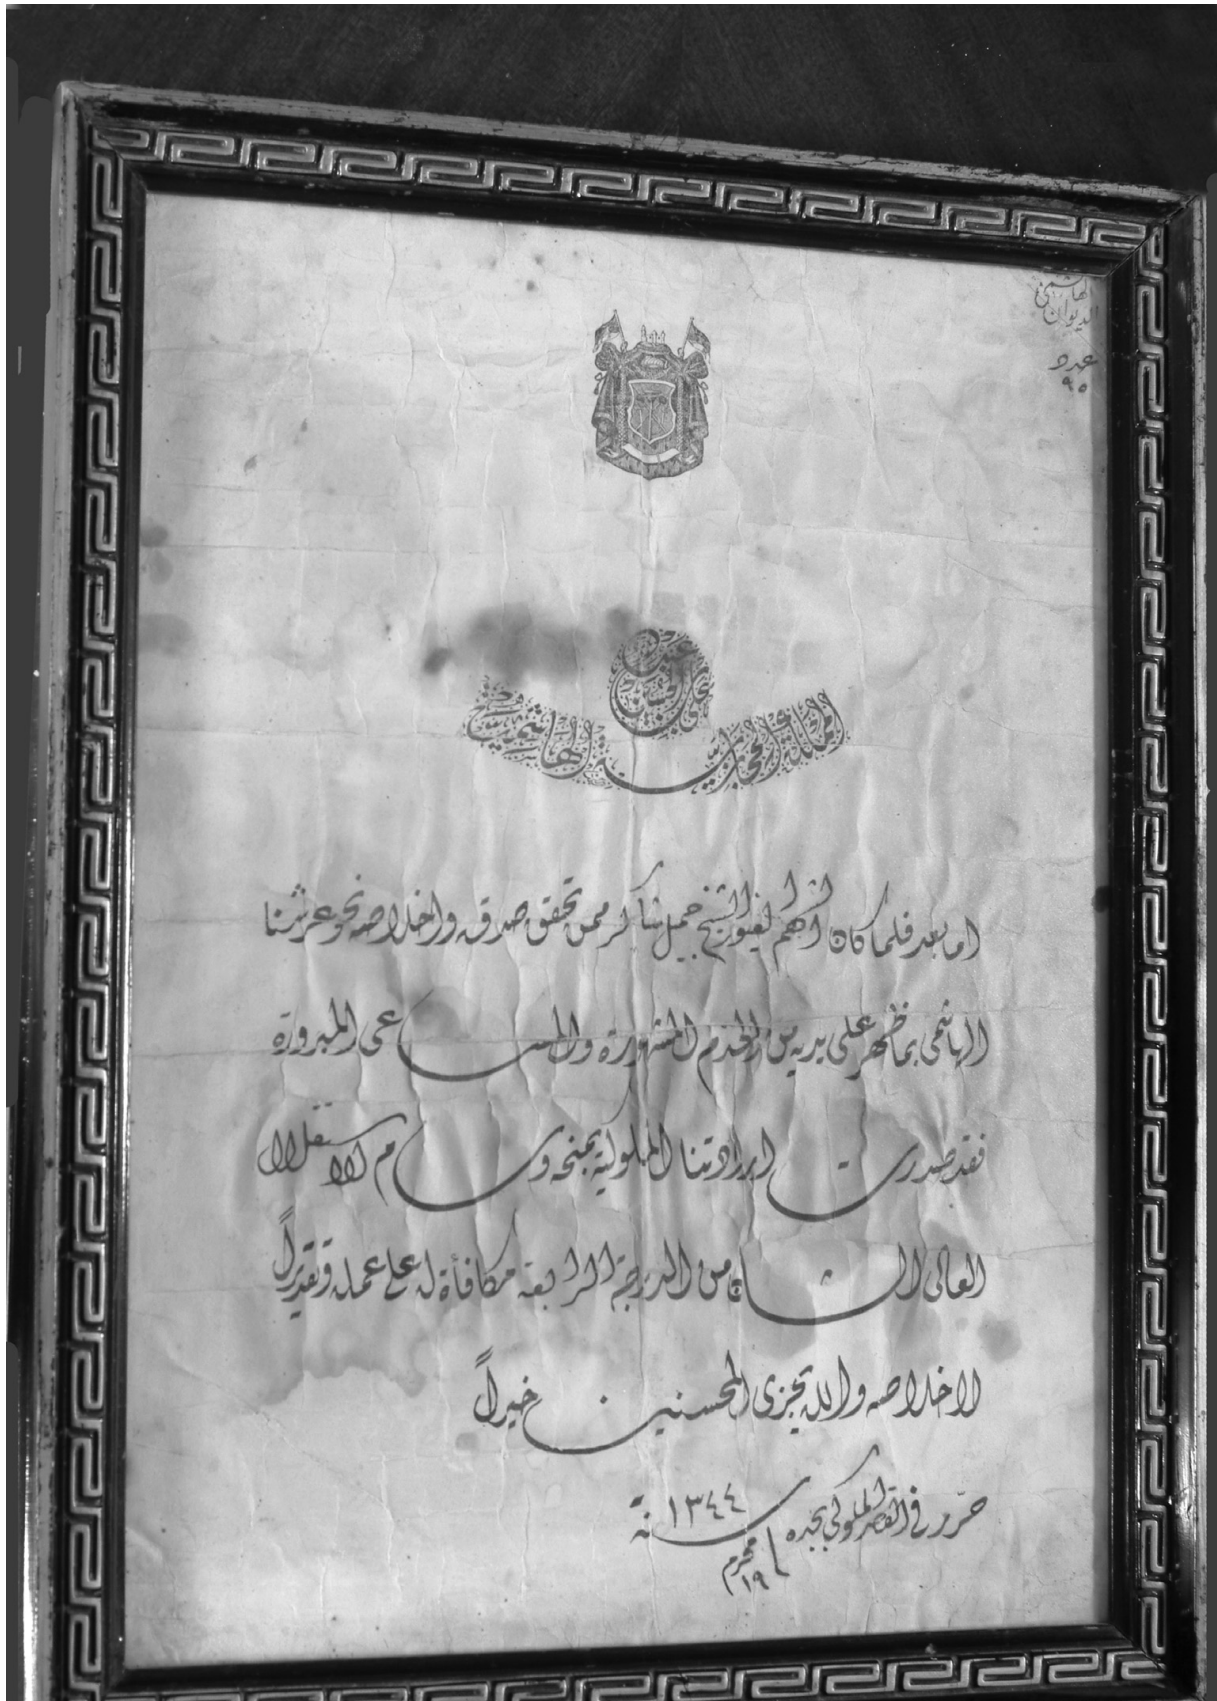 الديوان الهاشمي
عدد
٩٥
علي بن الحسين
المملكة الحجازية الهاشمية
اما بعد فلما كان الشهم الغيور الشيخ جميل شاكر ممن تحقق صدقه واخلاصه نحو عرشنا
الهاشمى بما ظهر على يديه من الخدم المشهورة والمساعى المبرورة
فقد صدرت ارادتنا الملوكية بمنحه وسام الاستقلال
العالى الشان من الدرجة الرابعة مكافأة له على عمله وتقديراً
لاخلاصه والله يجزى المحسنين خيراً
حرر في القصر الملوكي بجده
١٩ محرم سنة ١٣٤٤